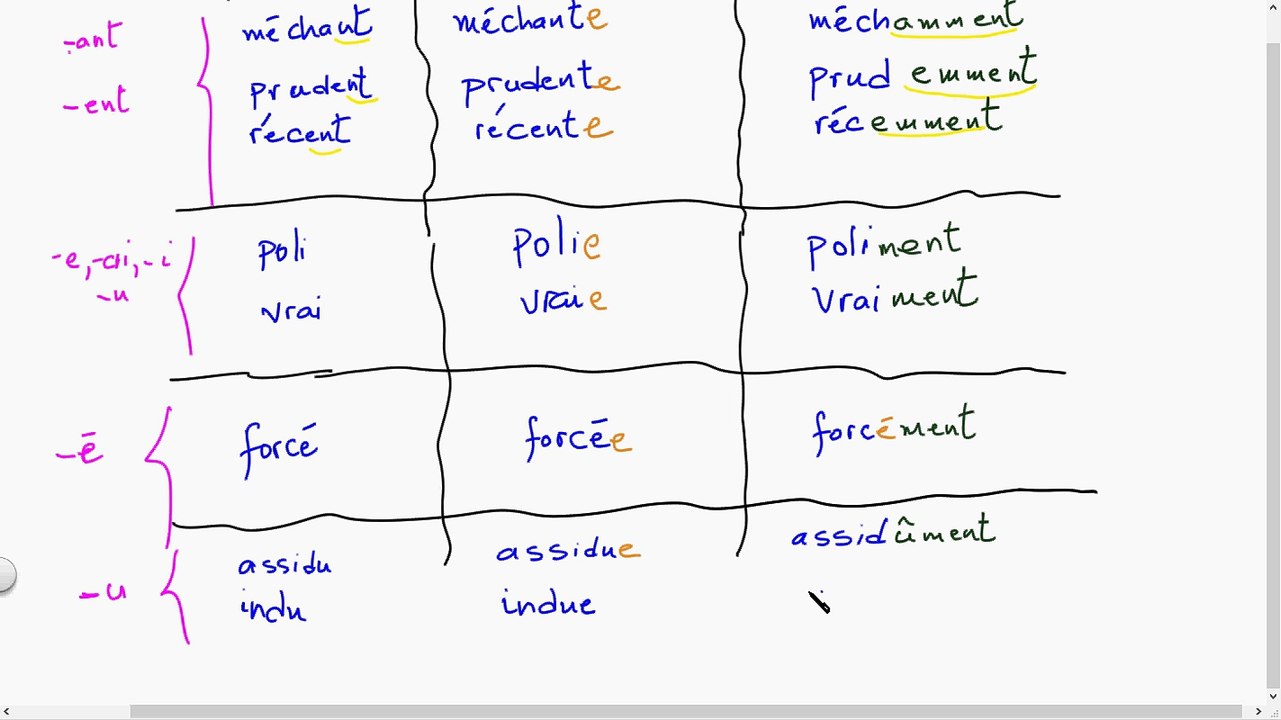 -ant méchant méchante méchamment
-ent prudent prudente prudemment
récent récente récemment
-e, -ai, -i poli polie poliment
-u vrai vraie vraiment
-é forcé forcée forcément
assidu assidue assidûment
-u indu indue